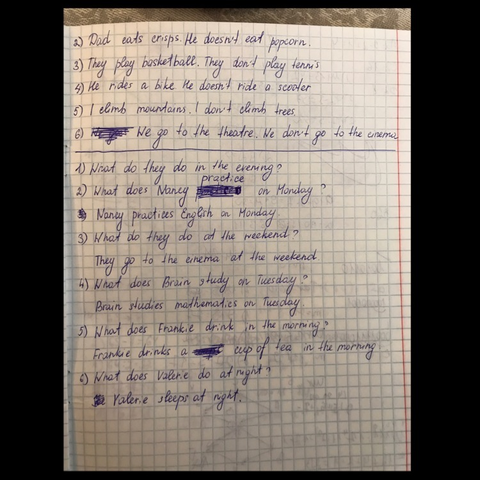 2) Dad eats crisps. He doesn't eat popcorn.
3) They play basketball. They don't play tennis
4) He rides a bike He doesn't ride a scooter
5) I climb mountains. I don't climb trees.
6) We go to the theatre. We don't go to the cinema
1) What do they do in the evening?
practice
2) What does Nancy on Monday?
Nancy practices English on Monday.
3) What do they do at the weekend?
They go to the cinema at the weekend.
4) What does Brain study on Tuesday?
Brain studies mathematics on Tuesday.
5) What does Frankie drink in the morning?
Frankie drinks a cup of tea in the morning
6) What does Valerie do at night?
Valerie sleeps at night.